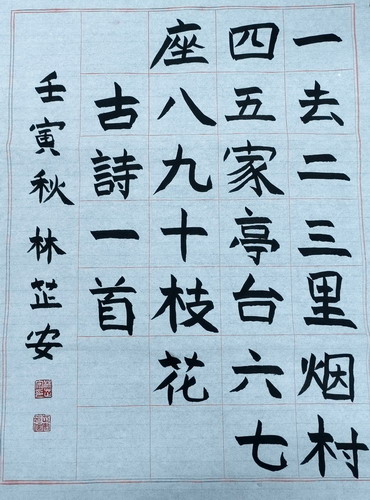 一去二三里烟村
四五家亭台六七
座八九十枝花
古詩一首
壬寅秋林芷安